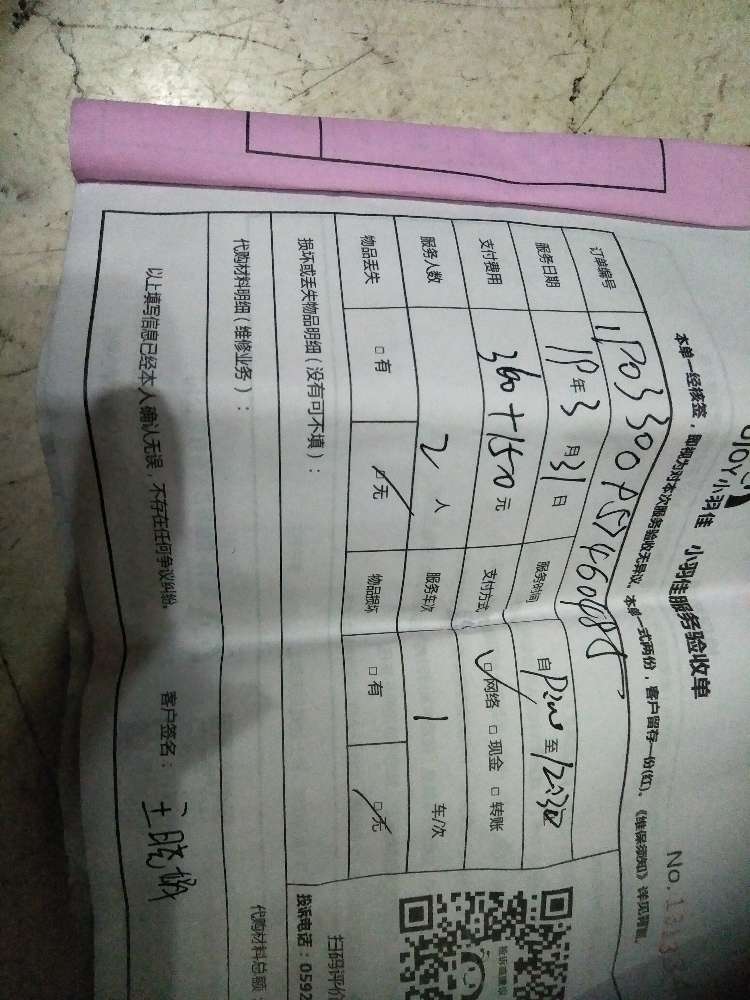 小羽佳 小羽佳服务验收单
No.
本单一经核签，即视为对本次服务验收无异议。本单一式两份，客户留存一份(红)。《维保须知》详见背面。
订单编号
服务日期 19年3月31日 服务时间 自 至12:30
支付费用 360+150元 支付方式 网络 □现金 □转账
服务人数 2人 服务车次 1 车/次
物品丢失 □有 □无 物品损坏 □有 □无
损坏或丢失物品明细（没有可不填）：
代购材料明细（维修业务）：
代购材料总额
以上填写信息已经本人确认无误，不存在任何争议纠纷。 客户签名：
扫码评价
投诉电话：0592